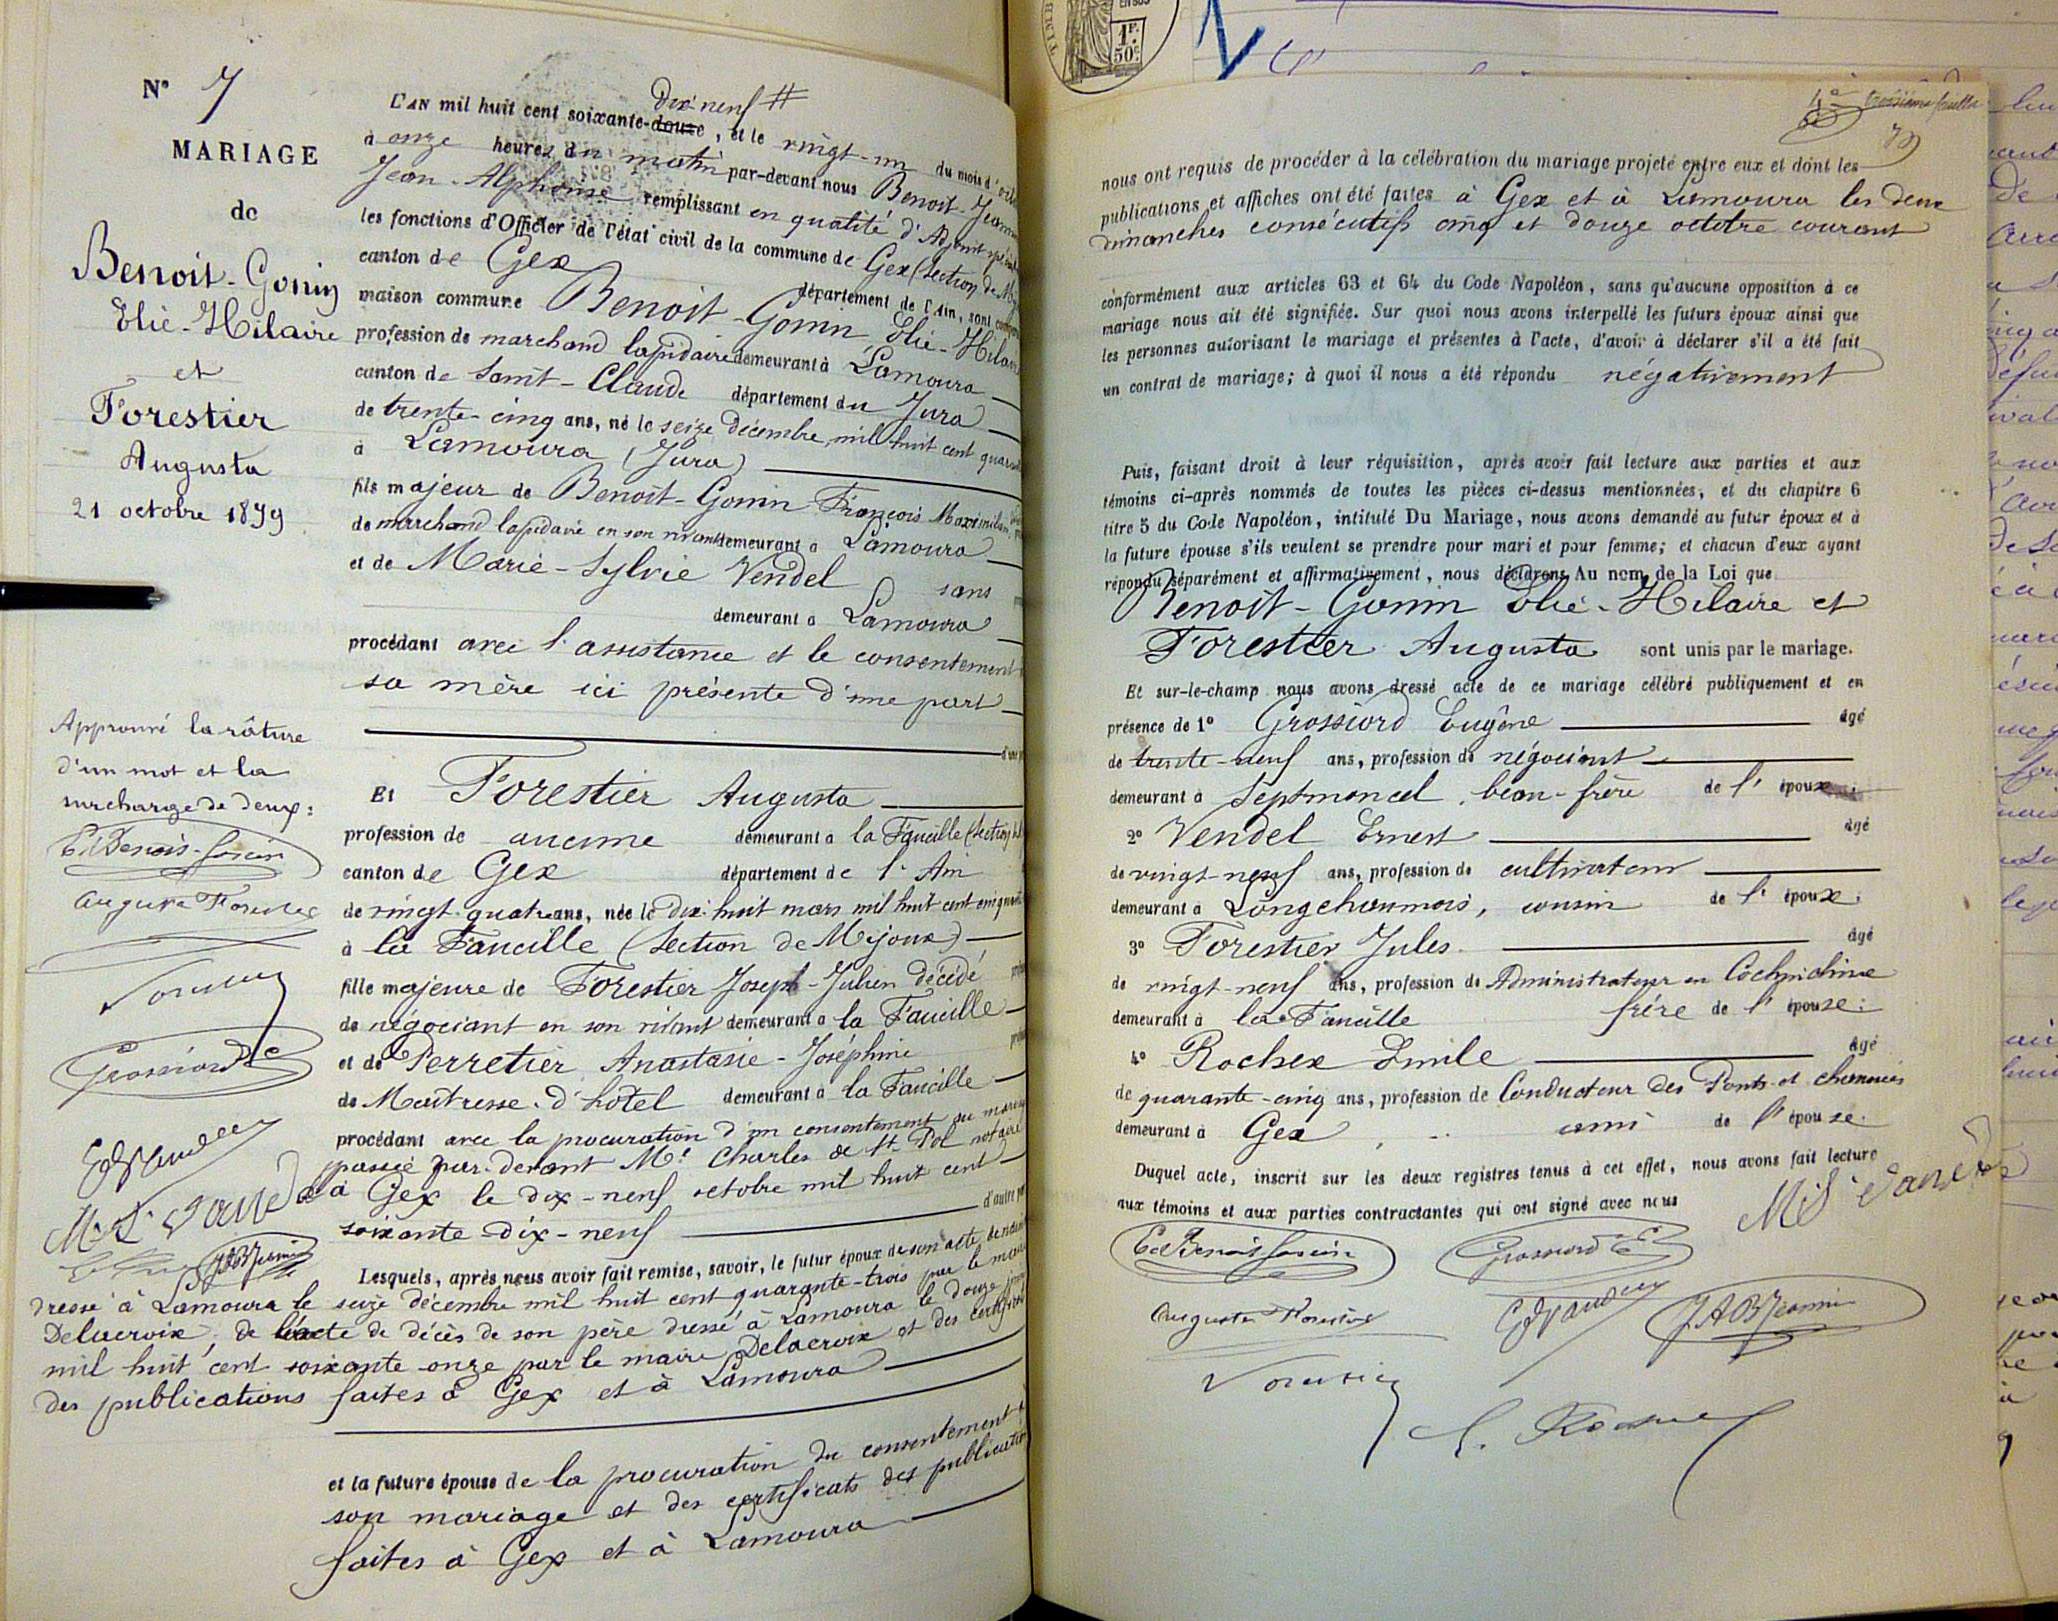 N° 7
MARIAGE
de
Benoit-Gonin
Elie-Hilaire
et
Forestier
Augusta
21 octobre 1879
Approuvé la râture
d'un mot et la
surcharge de deux:
Grossiord
dix-neuf #
L'AN mil huit cent soixante-douze, et le vingt-un du mois d'
à onze heures du matin par-devant nous Benoit-Jeannin
Jean-Alphonse remplissant en qualité d'Adjoint
les fonctions d'Officier de l'état civil de la commune de Gex (Section de
canton de Gex département de l'Ain, sont
maison commune Benoit-Gonin Elie-Hilaire
profession de marchand lapidaire demeurant à Lamoura
canton de Saint-Claude département du Jura
de trente-cinq ans, né le seize décembre mil huit cent
à Lamoura (Jura)
fils majeur de Benoit-Gonin François Maximilien
de marchand lapidaire en son vivant demeurant à Lamoura
et de Marie-Sylvie Vendel sans
demeurant à Lamoura
procédant avec l'assistance et le consentement
sa mère ici présente d'une part
Et Forestier Augusta
profession de aucune demeurant à la Faucille (Section
canton de Gex département de l'Ain
de vingt-quatre ans, née le dix-huit mars mil huit cent
à la Faucille (Section de Mijoux)
fille majeure de Forestier Joseph-Julien décédé
de négociant en son vivant demeurant à la Faucille
et de Perretier Anastasie-Joséphine
de Maîtresse d'hôtel demeurant à la Faucille
procédant avec la procuration d'un consentement au
passée par-devant Me Charles de St Pol notaire
à Gex le dix-neuf octobre mil huit cent
soixante-dix-neuf d'autre
Lesquels, après nous avoir fait remise, savoir, le futur époux de son acte de
dressé à Lamoura le seize décembre mil huit cent quarante-trois par le
Delacroix, de l'acte de décès de son père dressé à Lamoura le douze
mil huit cent soixante-onze par le maire Delacroix et des
des publications faites à Gex et à Lamoura
et la future épouse de la procuration du consentement à
son mariage et des certificats des
faites à Gex et à Lamoura
1F.
50c.
troisième feuillet
nous ont requis de procéder à la célébration du mariage projeté entre eux et dont les
publications et affiches ont été faites à Gex et à Lamoura les deux
dimanches consécutifs cinq et douze octobre courant
conformément aux articles 63 et 64 du Code Napoléon, sans qu'aucune opposition à ce
mariage nous ait été signifiée. Sur quoi nous avons interpellé les futurs époux ainsi que
les personnes autorisant le mariage et présentes à l'acte, d'avoir à déclarer s'il a été fait
un contrat de mariage; à quoi il nous a été répondu négativement
Puis, faisant droit à leur réquisition, après avoir fait lecture aux parties et aux
témoins ci-après nommés de toutes les pièces ci-dessus mentionnées, et du chapitre 6
titre 5 du Code Napoléon, intitulé Du Mariage, nous avons demandé au futur époux et à
la future épouse s'ils veulent se prendre pour mari et pour femme; et chacun d'eux ayant
répondu séparément et affirmativement, nous déclarons Au nom de la Loi que
Benoit-Gonin Elie-Hilaire et
Forestier Augusta sont unis par le mariage.
Et sur-le-champ nous avons dressé acte de ce mariage célébré publiquement et en
présence de 1° Grossiord Eugène âgé
de trente-neuf ans, profession de négociant
demeurant à Septmoncel, beau-frère de l'époux;
2° Vendel Ernest âgé
de vingt-neuf ans, profession de cultivateur
demeurant à Longchaumois, cousin de l'époux;
3° Forestier Jules âgé
de vingt-neuf ans, profession de Administrateur en Cochinchine
demeurant à la Faucille frère de l'épouse;
4° Rochex Emile âgé
de quarante-cinq ans, profession de Conducteur des Ponts et chaussées
demeurant à Gex, ami de l'épouse.
Duquel acte, inscrit sur les deux registres tenus à cet effet, nous avons fait lecture
aux témoins et aux parties contractantes qui ont signé avec nous
Grossiord